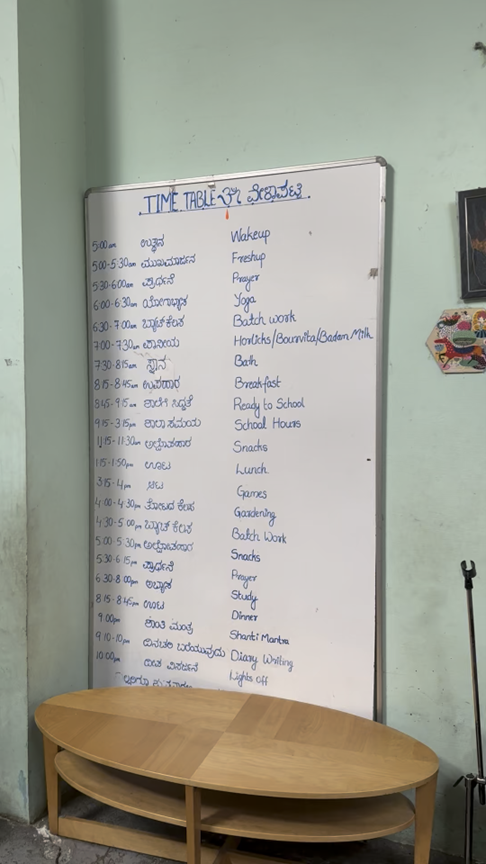 TIME TABLE ವೇಳಾಪಟ್ಟಿ
5:00 am ಉತ್ಥಾನ Wakeup
5:00-5:30am ಮುಖಮಾರ್ಜನ Freshup
5:30-6:00am ಪ್ರಾರ್ಥನೆ Prayer
6:00-6:30am ಯೋಗಾಭ್ಯಾಸ Yoga
6:30-7:00am ಬ್ಯಾಚ್ ಕೆಲಸ Batch work
7:00-7:30am ಪಾನೀಯ Horlicks/Bournvita/Badam Milk
7:30-8:15am ಸ್ನಾನ Bath
8:15-8:45am ಉಪಹಾರ Breakfast
8:45-9:15am ಶಾಲೆಗೆ ಸಿದ್ಧತೆ Ready to School
9:15-3:15pm ಶಾಲಾ ಸಮಯ School Hours
11:15-11:30am ಅಲ್ಪೋಪಹಾರ Snacks
1:15-1:50pm ಊಟ Lunch.
3:15-4pm ಆಟ Games
4:00-4:30pm ತೋಟದ ಕೆಲಸ Gaardening
4:30-5:00pm ಬ್ಯಾಚ್ ಕೆಲಸ Batch Work
5:00-5:30pm ಅಲ್ಪೋಪಹಾರ Snacks
5:30-6:15pm ಪ್ರಾರ್ಥನೆ Prayer
6:30-8:00pm ಅಭ್ಯಾಸ Study
8:15-8:45pm ಊಟ Dinner
9:00pm ಶಾಂತಿ ಮಂತ್ರ Shanti Mantra
9:10-10pm ದಿನಚರಿ ಬರೆಯುವುದು Diary Writing
10:00pm ದೀಪ ವಿಸರ್ಜನೆ Lights Off